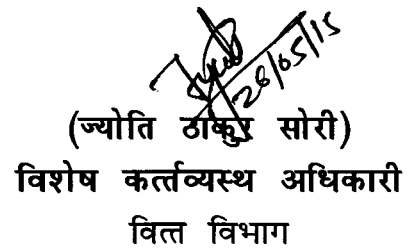 28/05/15
(ज्योति ठाकुर सोरी)
विशेष कर्त्तव्यस्थ अधिकारी
वित्त विभाग